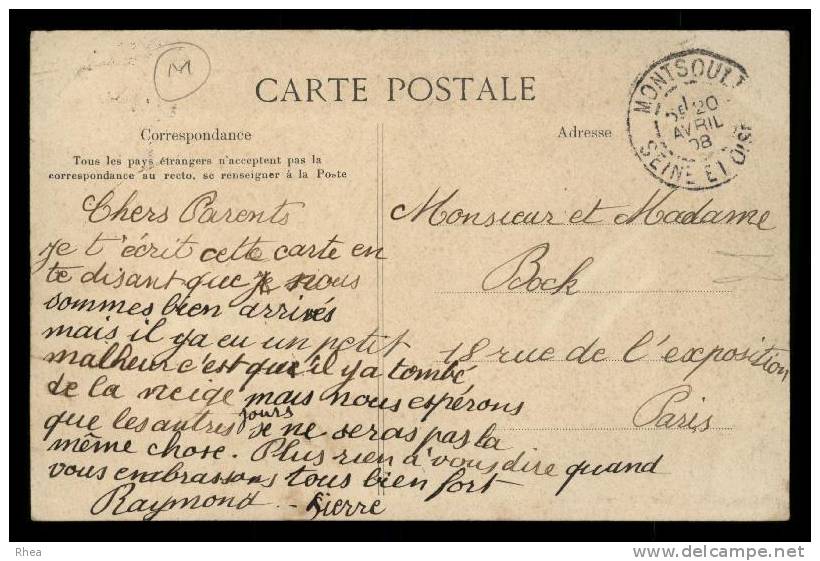 M
CARTE POSTALE
MONTSOULT
20
AVRIL
08
SEINE ET OISE
Correspondance
Adresse
Tous les pays étrangers n'acceptent pas la
correspondance au recto, se renseigner à la Poste
Chers Parents
je t'écrit cette carte en
te disant que nous
sommes bien arrivés
mais il ya eu un petit
malheur c'est que'il ya tombé
de la neige mais nous espérons
que les autres jours se ne seras pas la
même chose. Plus rien à vous dire quand
vous embrassons tous bien fort
Raymond - Pierre
Monsieur et Madame
Bock
18 rue de l'exposition
Paris
Rhea
delcampe.net